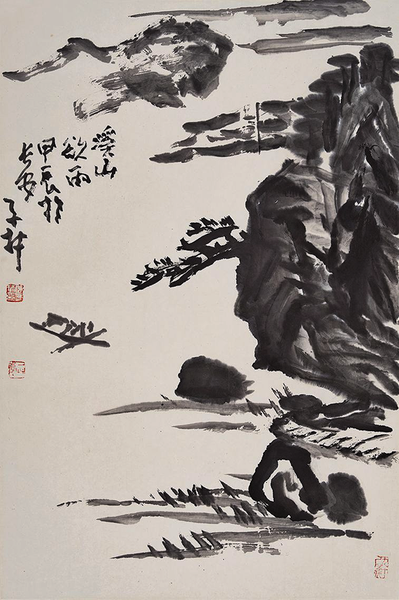 溪山
欲雨
甲辰於
长安
子